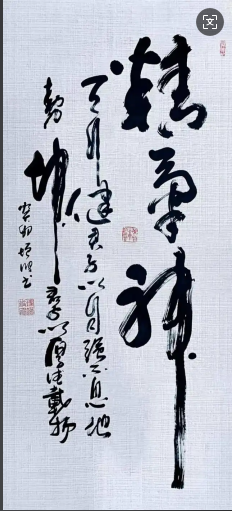 精氣神
天行健君子以自强不息地
勢坤君子以厚德載物
书